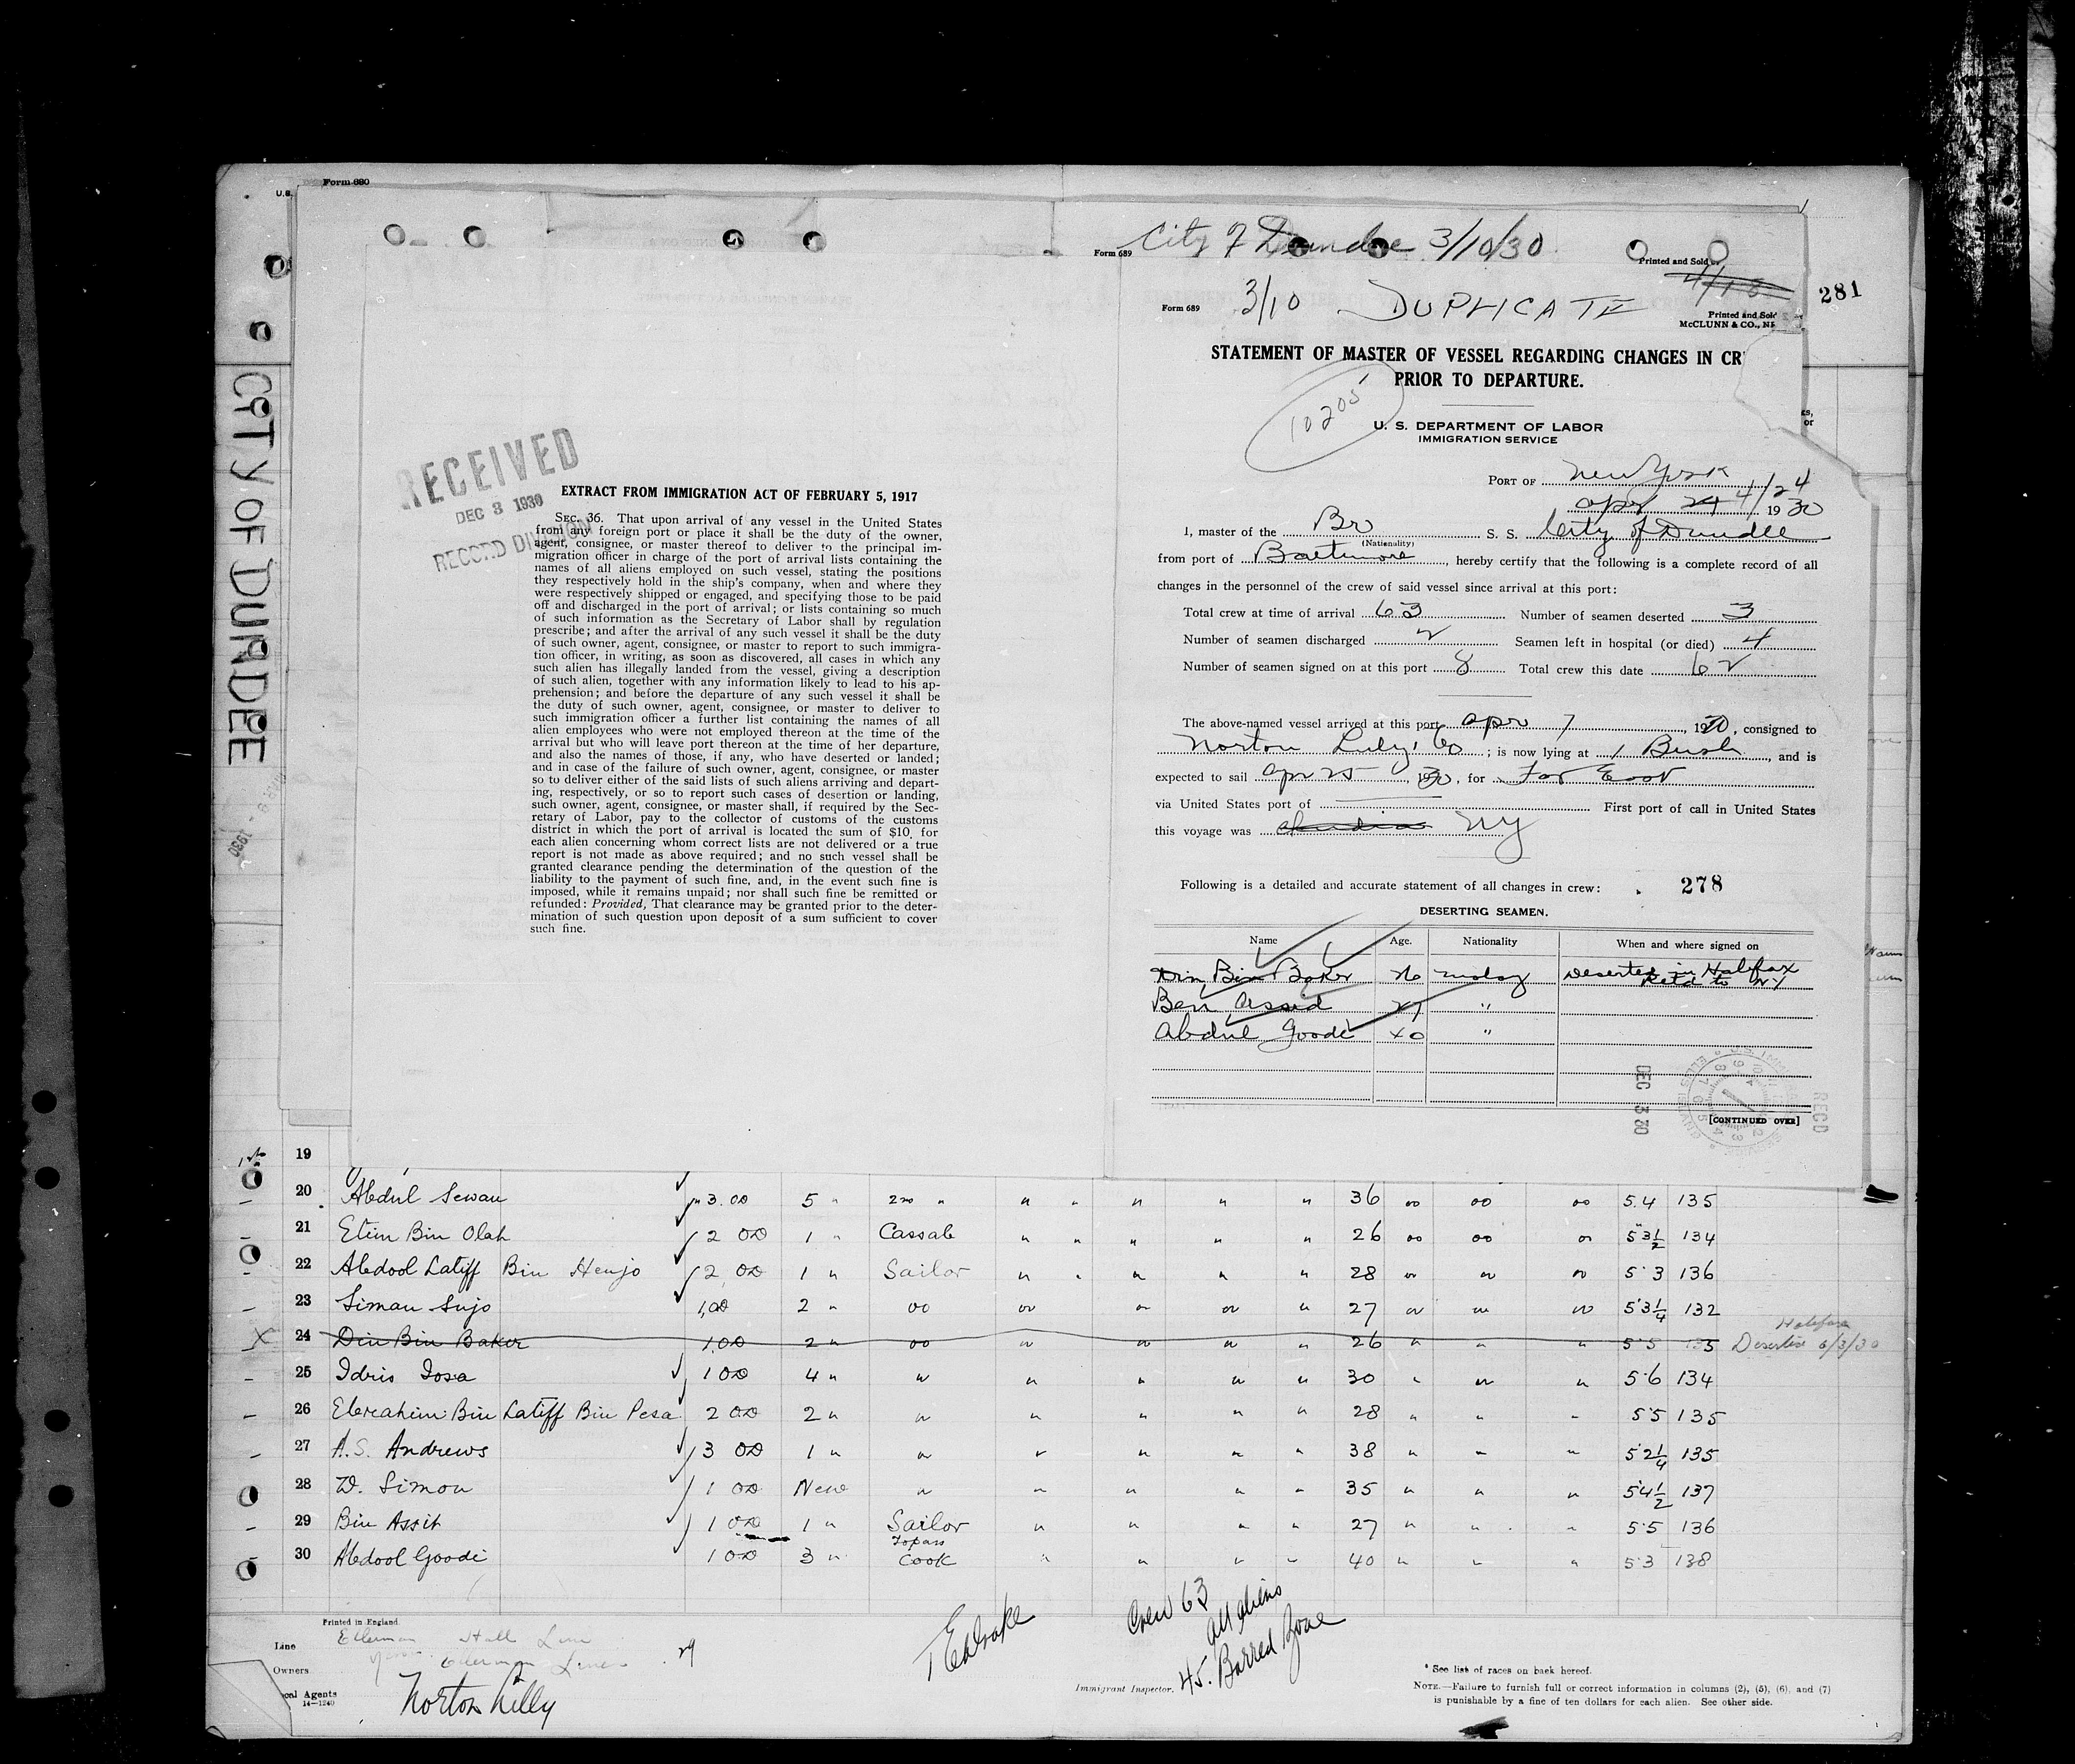 Form 680
U.S.
City of Dundee 3/10/30
Form 689
Printed and Sold
281
Form 689 3/10 DUPLICATE
Printed and Sold
McCLUNN & CO., N
STATEMENT OF MASTER OF VESSEL REGARDING CHANGES IN CR
PRIOR TO DEPARTURE.
10205
U. S. DEPARTMENT OF LABOR
IMMIGRATION SERVICE
PORT OF New York
Apr 24 4/24 1930
I, master of the Br S. S. City of Dundee
(Nationality)
from port of Baltimore, hereby certify that the following is a complete record of all
changes in the personnel of the crew of said vessel since arrival at this port:
Total crew at time of arrival 63 Number of seamen deserted 3
Number of seamen discharged 2 Seamen left in hospital (or died) 4
Number of seamen signed on at this port 8 Total crew this date 62
The above-named vessel arrived at this port Apr 7, 1930, consigned to
Norton Lilly Co; is now lying at 1 Bush, and is
expected to sail Apr 25, 1930, for Far East
via United States port of First port of call in United States
this voyage was NY
Following is a detailed and accurate statement of all changes in crew: 278
DESERTING SEAMEN.
Name Age. Nationality When and where signed on
Din Bin Baker 26 Malay Deserted in Halifax
Retd to NY
Ben Assid 27 "
Abdul Goode 40 "
DEC 3 30
REC'D
[CONTINUED OVER]
CITY OF DUNDEE
RECEIVED
DEC 3 1930
RECORD DIVISION
EXTRACT FROM IMMIGRATION ACT OF FEBRUARY 5, 1917
SEC. 36. That upon arrival of any vessel in the United States
from any foreign port or place it shall be the duty of the owner,
agent, consignee, or master thereof to deliver to the principal im-
migration officer in charge of the port of arrival lists containing the
names of all aliens employed on such vessel, stating the positions
they respectively hold in the ship's company, when and where they
were respectively shipped or engaged, and specifying those to be paid
off and discharged in the port of arrival; or lists containing so much
of such information as the Secretary of Labor shall by regulation
prescribe; and after the arrival of any such vessel it shall be the duty
of such owner, agent, consignee, or master to report to such immigra-
tion officer, in writing, as soon as discovered, all cases in which any
such alien has illegally landed from the vessel, giving a description
of such alien, together with any information likely to lead to his ap-
prehension; and before the departure of any such vessel it shall be
the duty of such owner, agent, consignee, or master to deliver to
such immigration officer a further list containing the names of all
alien employees who were not employed thereon at the time of the
arrival but who will leave port thereon at the time of her departure,
and also the names of those, if any, who have deserted or landed;
and in case of the failure of such owner, agent, consignee, or master
so to deliver either of the said lists of such aliens arriving and depart-
ing, respectively, or so to report such cases of desertion or landing,
such owner, agent, consignee, or master shall, if required by the Sec-
retary of Labor, pay to the collector of customs of the customs
district in which the port of arrival is located the sum of $10 for
each alien concerning whom correct lists are not delivered or a true
report is not made as above required; and no such vessel shall be
granted clearance pending the determination of the question of the
liability to the payment of such fine, and, in the event such fine is
imposed, while it remains unpaid; nor shall such fine be remitted or
refunded: Provided, That clearance may be granted prior to the deter-
mination of such question upon deposit of a sum sufficient to cover
such fine.
19
20 Abdul Sewan 3.00 5 " 2nd " " " " " " 36 " " " 5.4 135
21 Etim Bin Olah 2 00 1 " Cassab " " " " " 26 " " " 5 3½ 134
22 Abdool Latiff Bin Henjo 2 00 1 " Sailor " " " " " 28 " " " 5 3 136
23 Siman Sujo 1,00 2 " " " " " " 27 " " " 5 3¼ 132
24 Din Bin Baker 1.00 2 " " " " " " 26 " " " 5 5 135 Halifax
Deserted 6/3/30
25 Idris Iosa 1 00 4 " " " " " " 30 " " " 5 6 134
26 Ebrahim Bin Latiff Bin Pesa 2 00 2 " " " " " " 28 " " " 5 5 135
27 A.S. Andrews 3 00 1 " " " " " " 38 " " " 5 2¼ 135
28 W. Simon 1 00 New " " " " " 35 " " " 5 4½ 137
29 Bin Assit 1 00 1 " Sailor " " " " 27 " " " 5 5 136
30 Abdool Goodi 1 00 3 " Topass
Cook " " " " 40 " " " 5 3 138
Printed in England.
Line Ellerman Hall Line
Owners Ellerman Lines 29
Local Agents Norton Lilly
14—1240
Crew 63
All aliens
45. Barred Zone
Immigrant Inspector.
* See list of races on back hereof.
NOTE.—Failure to furnish full or correct information in columns (2), (5), (6), and (7)
is punishable by a fine of ten dollars for each alien. See other side.